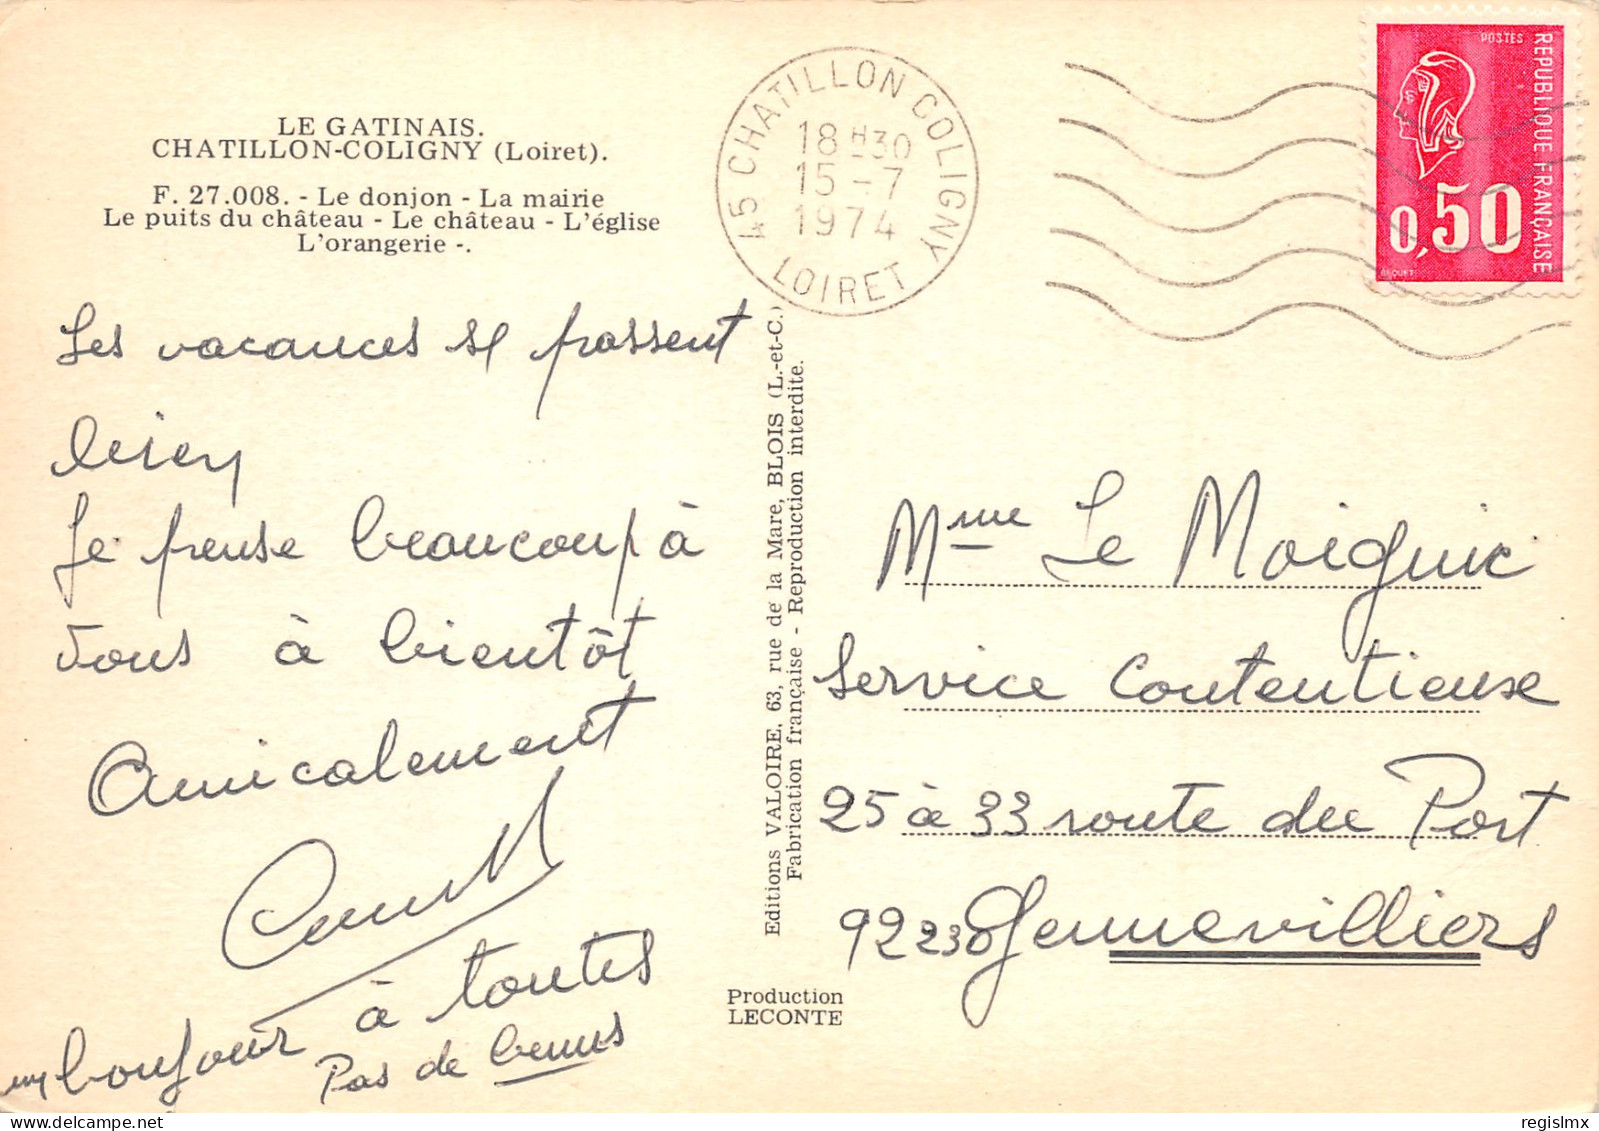 LE GATINAIS.
CHATILLON-COLIGNY (Loiret).
F. 27.008. - Le donjon - La mairie
Le puits du château - Le château - L'église
L'orangerie -.
45 CHATILLON COLIGNY
LOIRET
18 H 30
15 - 7
1974
POSTES
REPUBLIQUE FRANÇAISE
0,50
BEQUET
Les vacances se passent
bien
Je pense beaucoup à
vous à bientôt
Amicalement
bonjour à toutes
Pas de
Editions VALOIRE, 63, rue de la Mare, BLOIS (L.-et-C.)
Fabrication française - Reproduction interdite.
Production
LECONTE
Mme Le Moiguic
Service Contentieuse
25 à 33 route du Port
92230 Gennevilliers
delcampe.net
regislmx